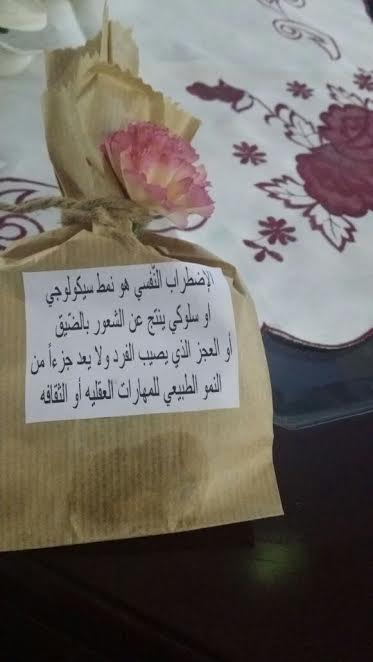 الإضطراب النّفسي هو نمط سيكولوجي
او سلوكي ينتج عن الشعور بالضيق
أو العجز الذي يصيب الفرد ولا يعد جزءاً من
النمو الطبيعي للمهارات العقليه أو الثقافه